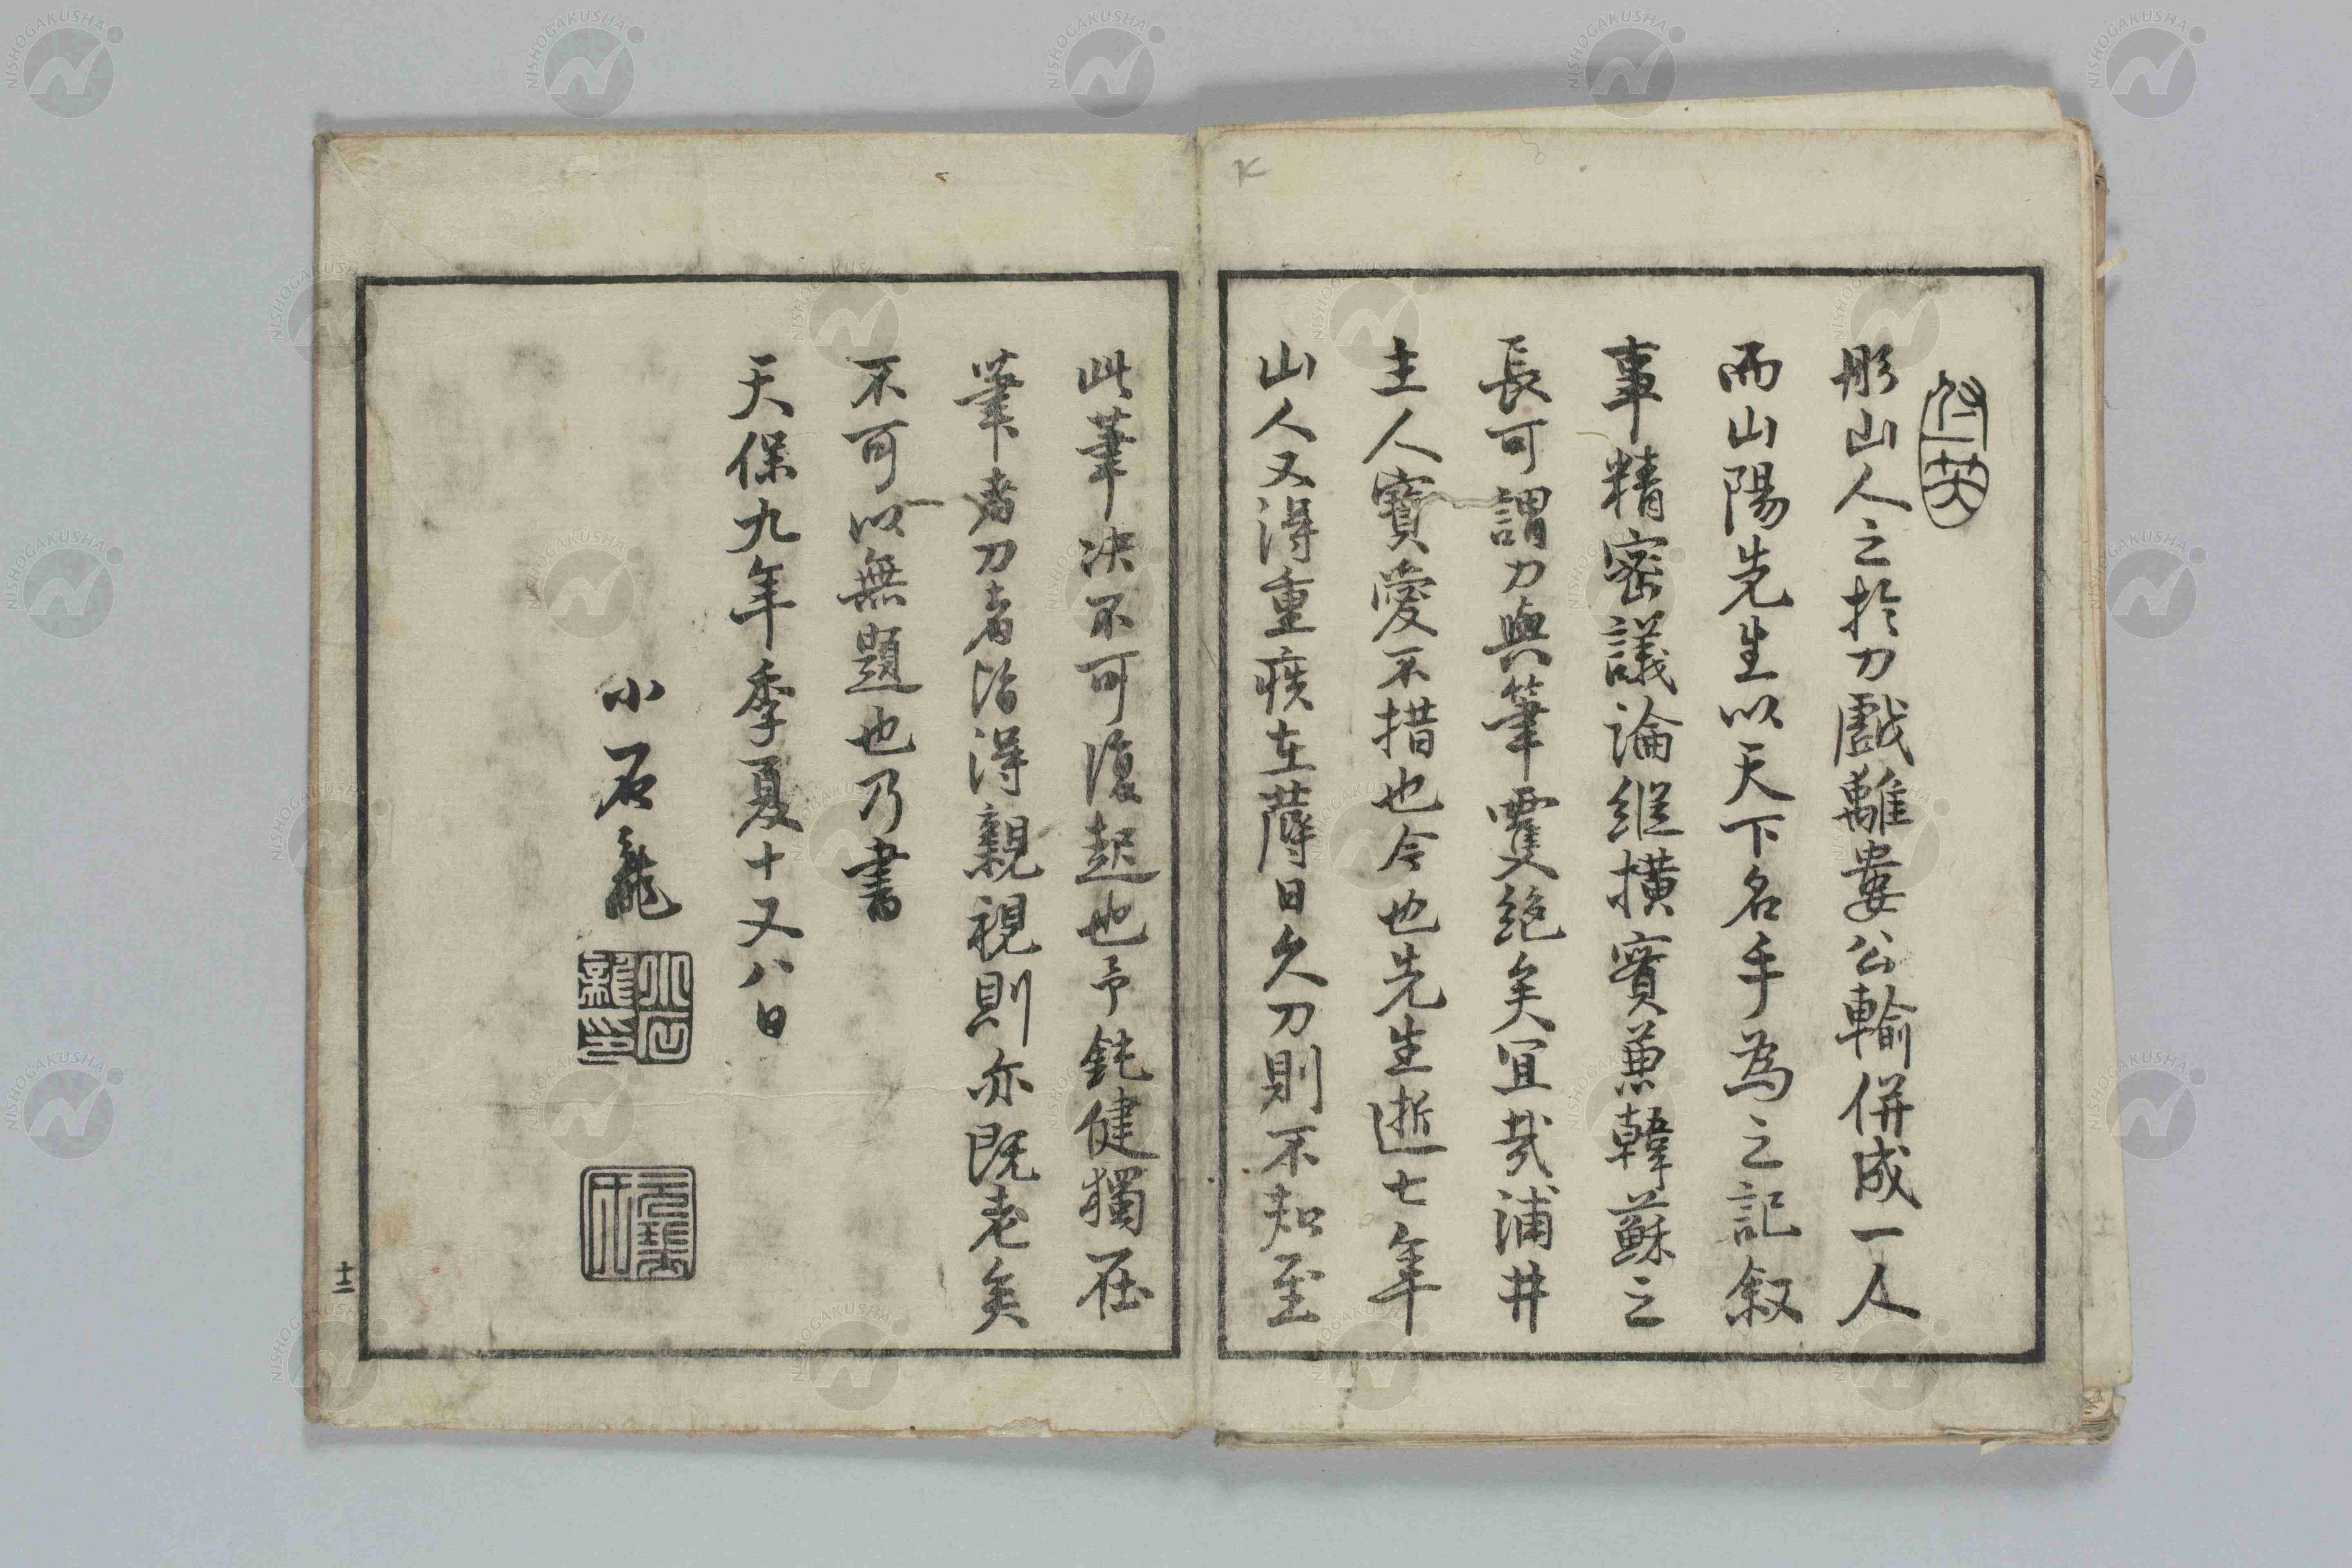 彫山人之於刀戲離婁公輸併成一人
而山陽先生以天下名手為之記叙
事精密議論縱横實兼韓蘇之
長可謂刀與筆雙絶矣宜哉浦井
主人寶愛不措也今也先生逝七年
山人又得重疾在蓐日久刀則不知至
此筆決不可復起也予鈍健獨存
筆者刀者皆得親視則亦既老矣
不可以無題也乃書
天保九年季夏十又八日
小石龍
十二
NISHOGAKUSHA